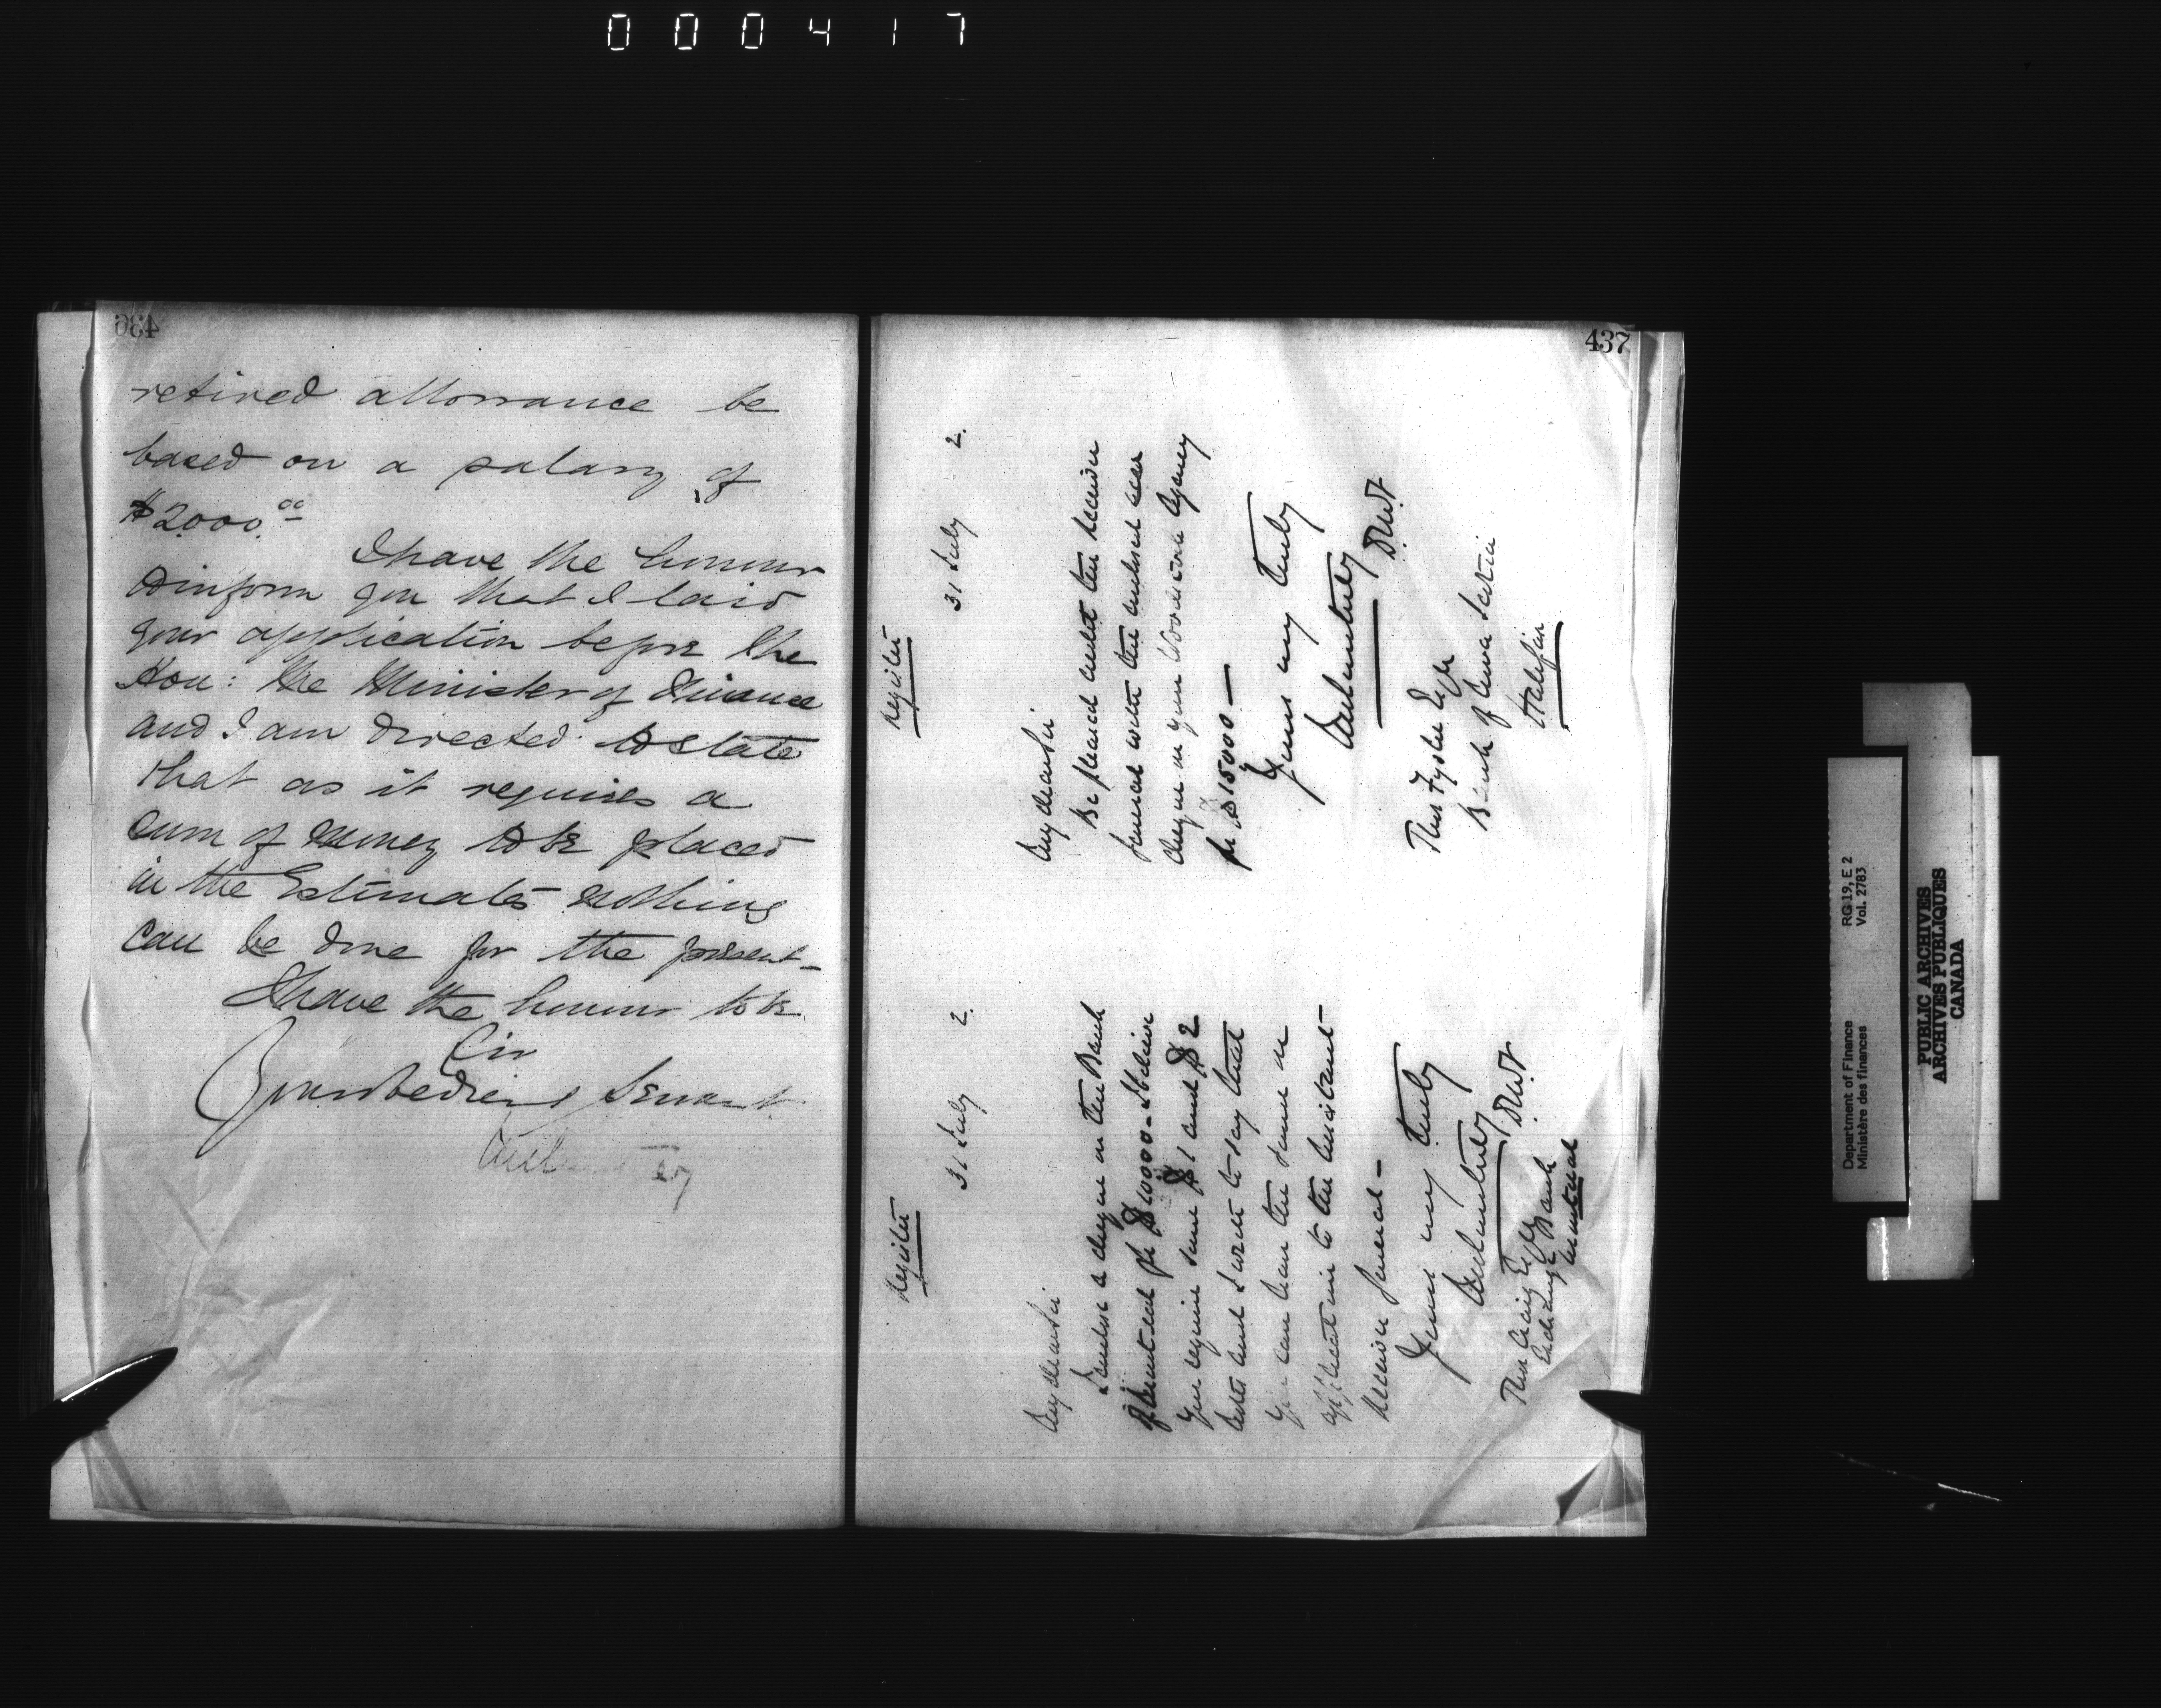 000417
436
retired allowance be
based on a salary of
$2,000.00
I have the honour
to inform you that I laid
your application before the
Hon: the Minister of Finance
and I am directed to state
that as it requires a
sum of money to be placed
in the Estimates nothing
can be done for the present_
I have the honour to be
Sir
Your obedient Servant
437
Register
31 July 2.
My dear Sir
I enclose a cheque on the Bank
of Montreal for $10000 -
you require some $1 and $2
notes and I write to say that
you can have the same on
application to the Assistant
Receiver General -
Yours very truly
Courtney
DMF
Thos Craig Esqr
Exchange Bank
Montreal
Register
31 July 2.
My dear Sir
Be pleased credit the Receiver
General with the enclosed
cheque on your Woodstock Agency
for $15000 —
Yours very truly
Courtney
DMF
Thos Fyshe Esqr
Bank of Nova Scotia
Halifax
Department of Finance RG 19, E 2
Ministère des finances Vol. 2783
PUBLIC ARCHIVES
ARCHIVES PUBLIQUES
CANADA